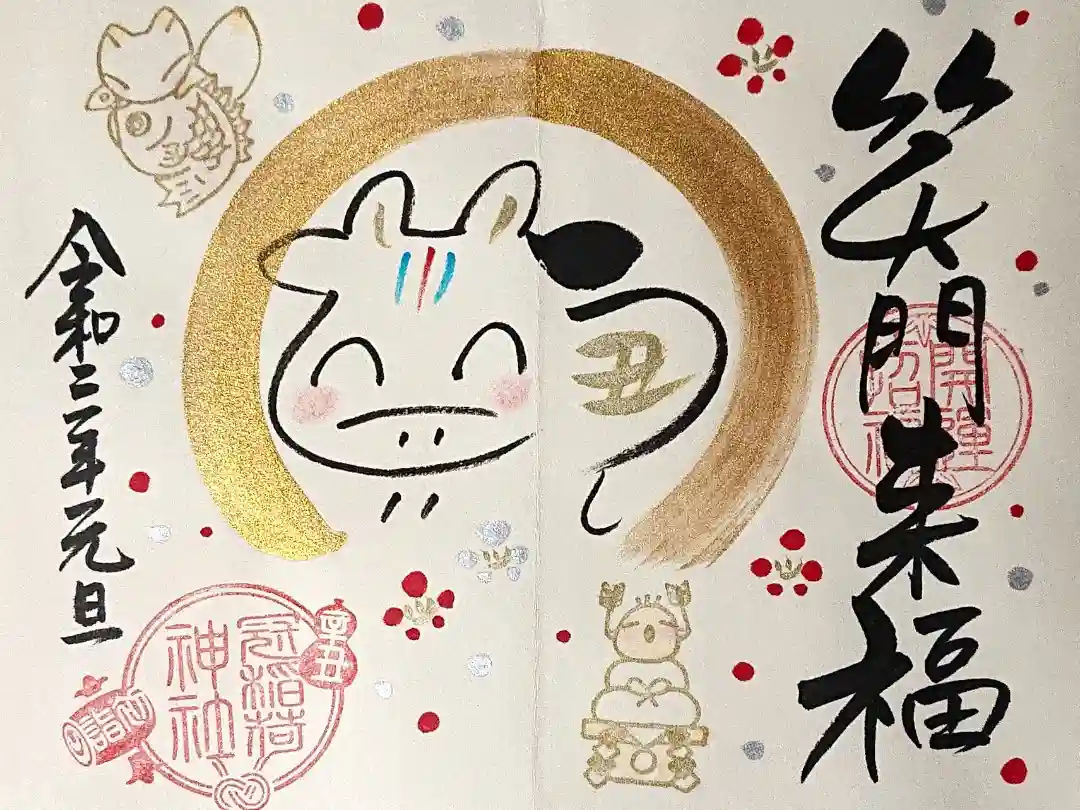 笑門来福
開運
招福
丑
令和三年元旦
冠稲荷
神社
辛丑
初詣